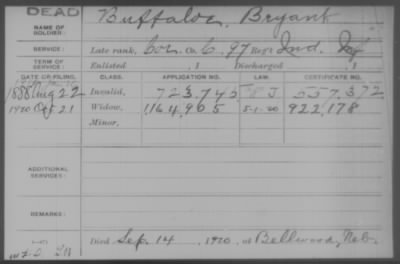 DEAD
NAME OF SOLDIER: Buffalow, Bryant
SERVICE: Late rank, Cor. Co. C, 97 Reg't Ind. Inf
TERM OF SERVICE: Enlisted , 1 Discharged , 1
DATE OF FILING. CLASS. APPLICATION NO. LAW. CERTIFICATE NO.
1888 Aug 22 Invalid, 723,745 557,372
1920 Oct 21 Widow, 1164,905 5-1-20 922,178
Minor,
ADDITIONAL SERVICES:
REMARKS:
Died Sep. 14, 1920, at Bellwood, Neb.